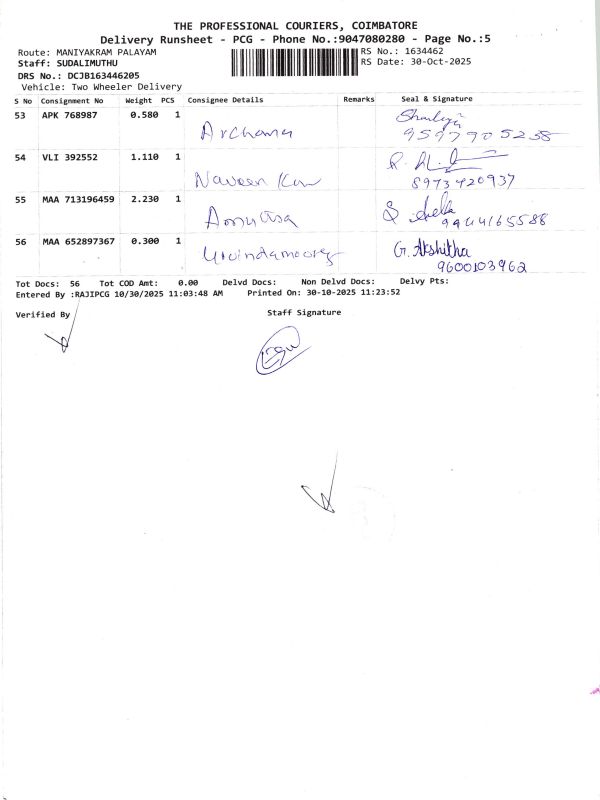 THE PROFESSIONAL COURIERS, COIMBATORE
Delivery Runsheet - PCG - Phone No.:9047080280 - Page No.:5
Route: MANIYAKRAM PALAYAM RS No.: 1634462
Staff: SUDALIMUTHU RS Date: 30-Oct-2025
DRS No.: DCJB163446205
Vehicle: Two Wheeler Delivery
S No Consignment No Weight PCS Consignee Details Remarks Seal & Signature
53 APK 768987 0.580 1
Archana 9597705238
54 VLI 392552 1.110 1
Naveen Kum 8973420937
55 MAA 713196459 2.230 1
9444165588
56 MAA 652897367 0.300 1 G. Akshitha
9600103962
Tot Docs: 56 Tot COD Amt: 0.00 Delvd Docs: Non Delvd Docs: Delvy Pts:
Entered By :RAJIPCG 10/30/2025 11:03:48 AM Printed On: 30-10-2025 11:23:52
Verified By Staff Signature